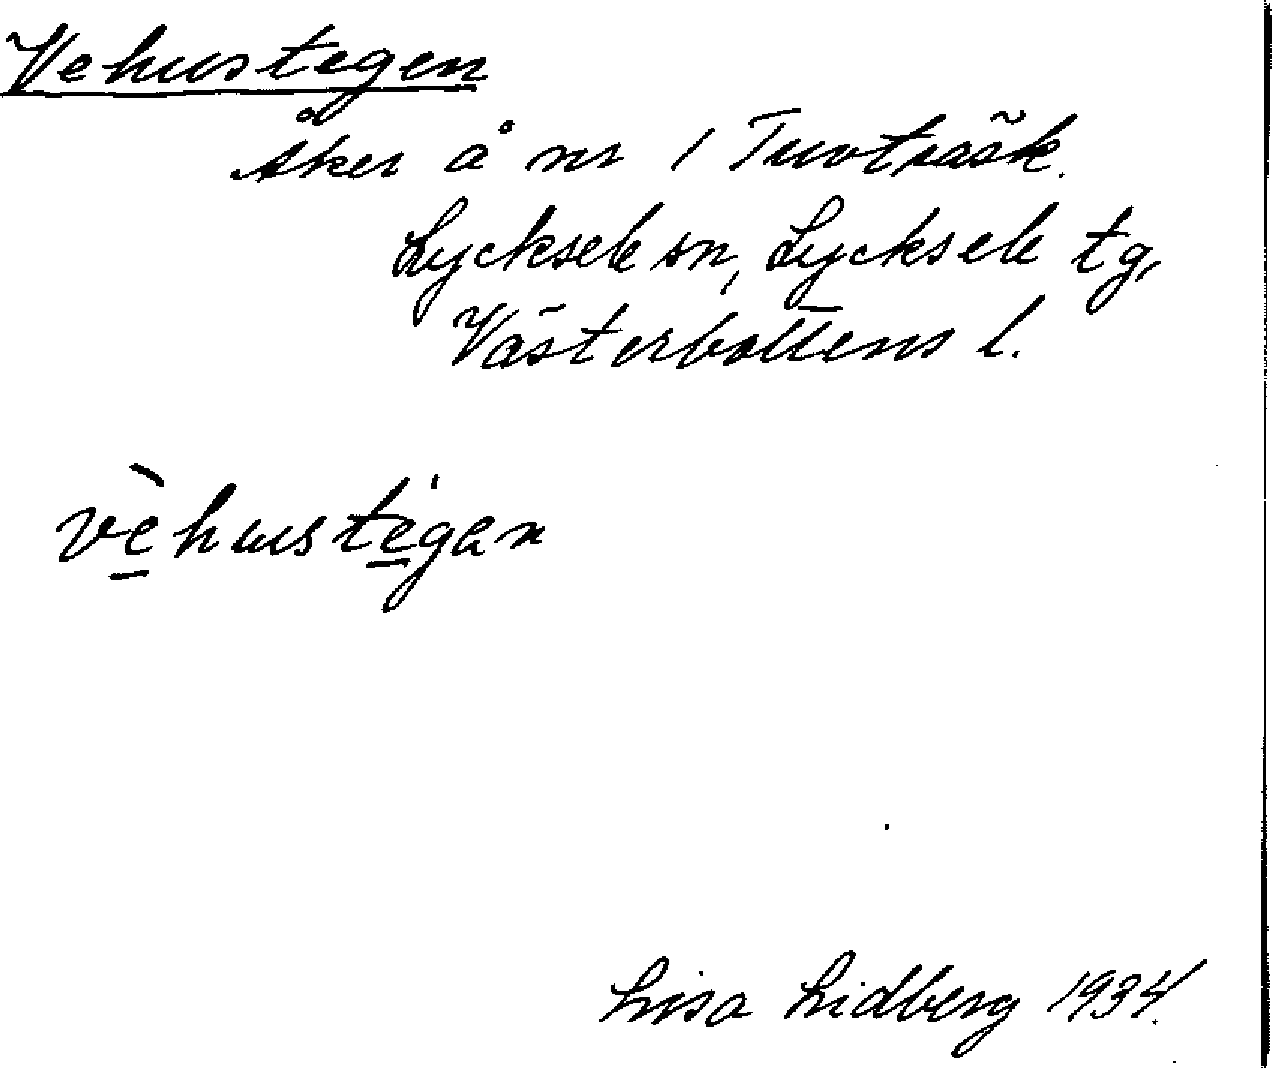 Vehustegen
Åker å nr 1 Tuvträsk.
Lycksele sn, Lycksele tg,
Västerbottens l.
vè̱huste̱gen
Lisa Lidberg 1934.